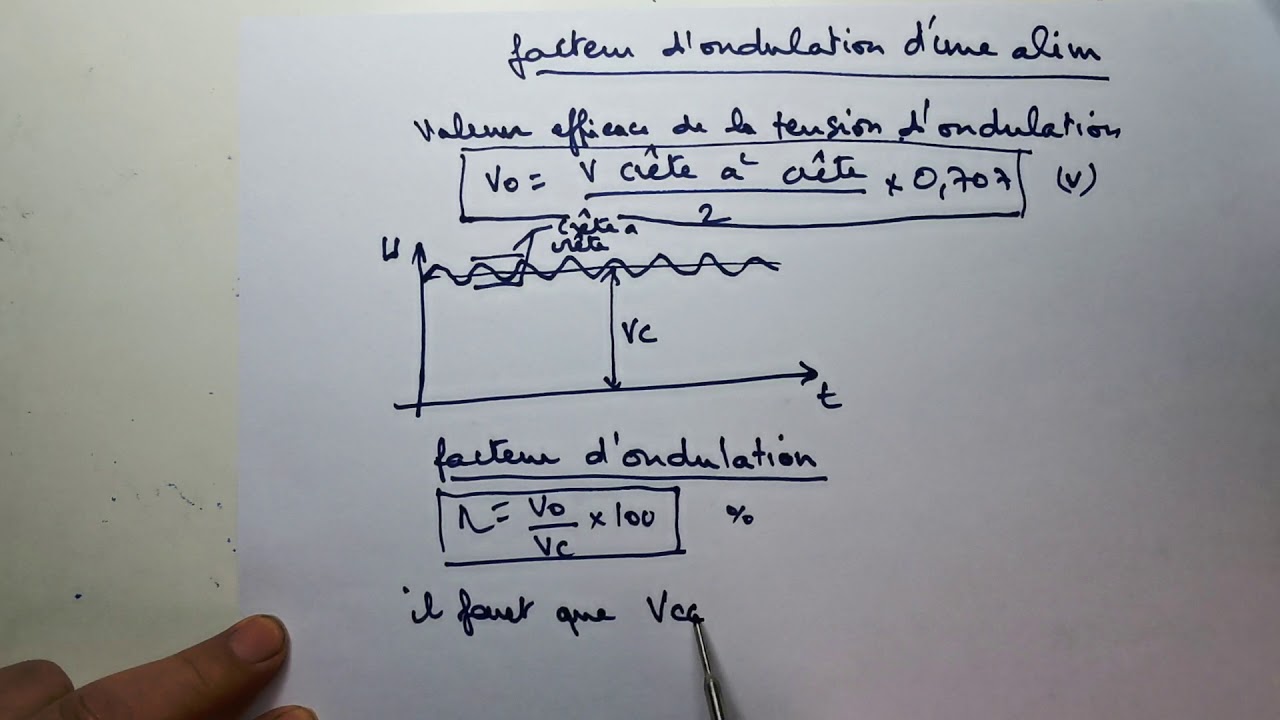 facteur d'ondulation d'une alim
Valeur efficace de la tension d'ondulation
Vo = V crête à crête / 2 × 0,707 (V)
U
crête a
crête
VC
t
facteur d'ondulation
r = Vo / Vc × 100 %
il faut que Vcc